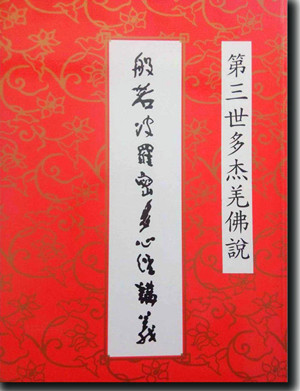 第三世多杰羌佛說
般若波羅密多心經講義